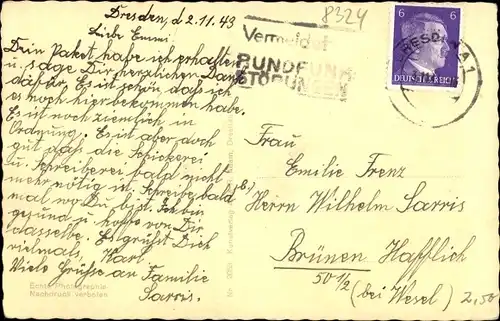 Dresden, d 2.11.43
Liebe Emmi.
Dein Paket habe ich erhalten
u. sage Dir herzlichen Dank
dafür. Es ist schön, daß ich
es noch hier bekommen habe.
Es ist noch ziemlich in
Ordnung. Es ist aber doch
gut daß die Schickerei
u. Schreiberei bald nicht
mehr nötig ist. Schreib bald
mal wo Du bist. Ich bin
gesund u. hoffe von Dir
dasselbe. Es grüßt Dich
vielmals, Karl.
Viele Grüße an Familie
Sarris.
Echte Photographie
Nachdruck verboten
Nr. Kunstverlag Dresden
8324
Vermeidet
RUNDFUNK
STÖRUNGEN
6 6
DEUTSCHES REICH
DRESDEN A 1
Frau
Emilie Frenz
b) Herrn Wilhelm Sarris
Brünen Hafflich
50 1/2
(bei Wesel)
2,50